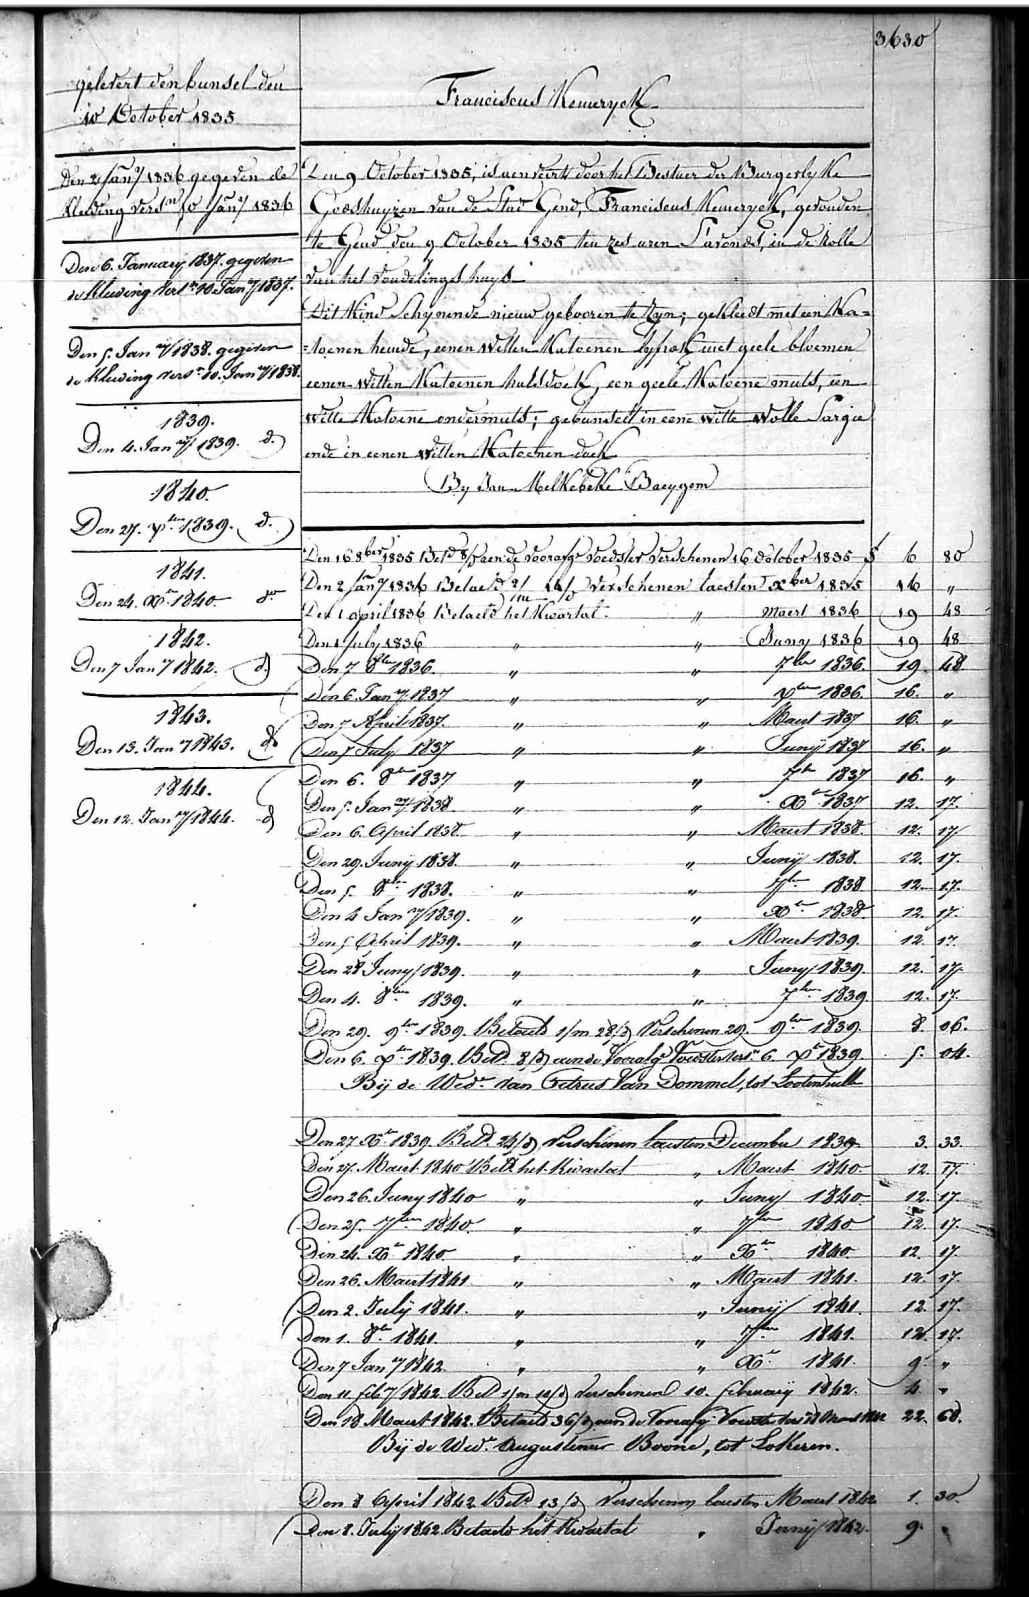 3630
gelevert den bunsel den
10 October 1835
Den 2 Jan.y 1836 gegeven de
kleeding vers.n 10 Jan.y 1836
Den 6. January 1837. gegeven
de kleeding vers.n 10. Jan.y 1837.
Den 5. Jan.y 1838. gegeven
de kleeding vers.n 10. Jan.y 1838.
1839.
Den 4. Jan.y 1839. d.o
1840.
Den 27. X.ber 1839. d.o
1841.
Den 24. X.r 1840. d.o
1842.
Den 7 Jan.y 1842. d.o
1843.
Den 13. Jan.y 1843. d.o
1844.
Den 12. Jan.y 1844. d.o
Franciscus
Den 9 October 1835, is aenveert door het Bestuer der Burgerlyke
Godshuyzen van de Stad Gend, Franciscus gevonden
te Gend den 9 October 1835 ten zes uren s'avonds, in de Rolle
van het vondelingshuys
Dit Kind schynende nieuw gebooren te zyn; gekleedt met een Ka=
=toenen hemde, eenen witten Katoenen lyfrok met geele bloemen
eenen witten Katoenen halsdoek, een geele Katoene muts, een
witte Katoene ondermuts; gebunselt in eene witte wolle Sargie
ende in eenen witten Katoenen doek
By Baeygem
Den 16 8ber 1835 Bet.d 8/d aen de voorafg.e voedster verschenen 16 October 1835 f 6 80
Den 2 Jan.y 1836 Betaeld verschenen laesten Xber 1835 16 "
Den 1 april 1836 Betaeld het Kwartal. " maert 1836 19 48
Den 1 July 1836 " " Juny 1836 19 48
Den 7 8bre 1836. " " 7bre 1836 19. 48
Den 6. Jan.y 1837 " " X.ber 1836. 16. "
Den 7 April 1837. " " Maert 1837 16. "
Den 7 July 1837 " " Junij 1837 16. "
Den 6. 8.bre 1837 " " 7.bre 1837 16. "
Den 5. Jan.y 1838. " " X.bre 1837 12. 17.
Den 6. April 1838. " " Maert 1838. 12. 17
Den 29. Junij 1838. " " Junij 1838. 12. 17.
Den 5. 8.bre 1838. " " 7.bre 1838 12. 17.
Den 4 Jan.y 1839. " " X.bre 1838. 12. 17.
Den 5 April 1839. " " Maert 1839. 12. 17.
Den 28 Juny 1839. " " Juny 1839. 12. 17.
Den 4. 8.bre 1839. " " 7.bre 1839 12. 17.
Den 29. 9.bre 1839. Betaeld 1/m 28/d Verschenen 29. 9.bre 1839. 8. 06.
Den 6. X.bre 1839. Bet.d 8/d aen de Voorafg.e Voedster vers.n 6. X.r 1839. 5. 04.
Bij de Wed.e van Petrus Van Dommel, tot Lootenhulle
Den 27 X.bre 1839. Bet.d. 24/d Verschenen laesten December 1839. 3. 33.
Den 27. Maert 1840 Bet.d het Kwartal " Maert 1840 12. 17.
Den 26. Juny 1840 " " Juny 1840. 12. 17.
Den 25. 7bre 1840. " " 7bre 1840 12. 17.
Den 24. X.r 1840. " " X.r 1840. 12. 17.
Den 26. Maert 1841 " " Maert 1841. 12. 17.
Den 2. Julij 1841. " " Junij 1841. 12. 17.
Den 1. 8.bre 1841. " " 7.bre 1841. 12. 17.
Den 7 Jan.y 1842. " " X.r 1841. 9. "
Den 11 feb.y 1842. Bet.d 1/m 10/d verschenen 10. february 1842. 4. "
Den 18 Maert 1842. Betaeld 36/d aen de Voorafg.e Voedster vers.n 18 Maert 1842 22. 68.
Bij de Wed.e Augustinus Boone, tot Lokeren.
Den 8 April 1842. Bet.d 13/d Verschenen laesten Maert 1842 1. 30.
Den 8. Julij 1842. Betaeld het Kwartal " Junij 1842. 9. "